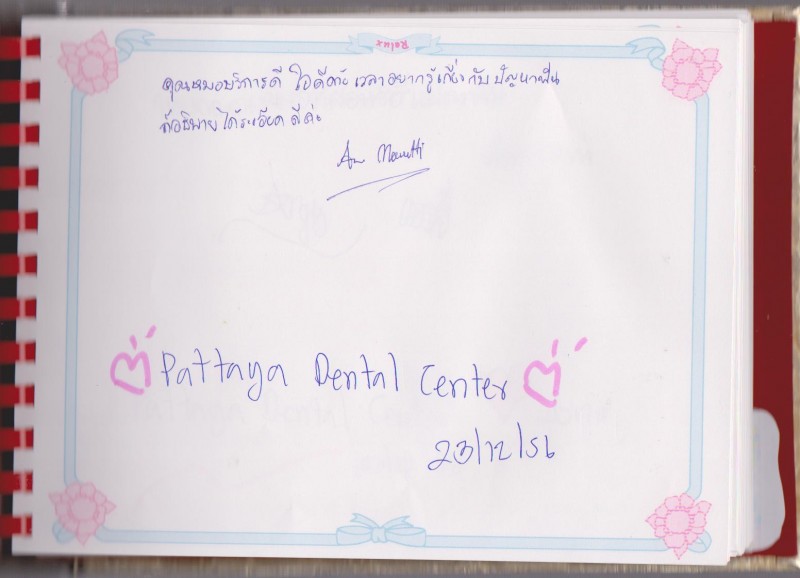 Relax
คุณหมอบริการดี ใจดีค่ะ เวลาอยากรู้เกี่ยวกับปัญหาฟัน
ก็อธิบายได้ละเอียดดีค่ะ
Pattaya Dental Center
23/12/56